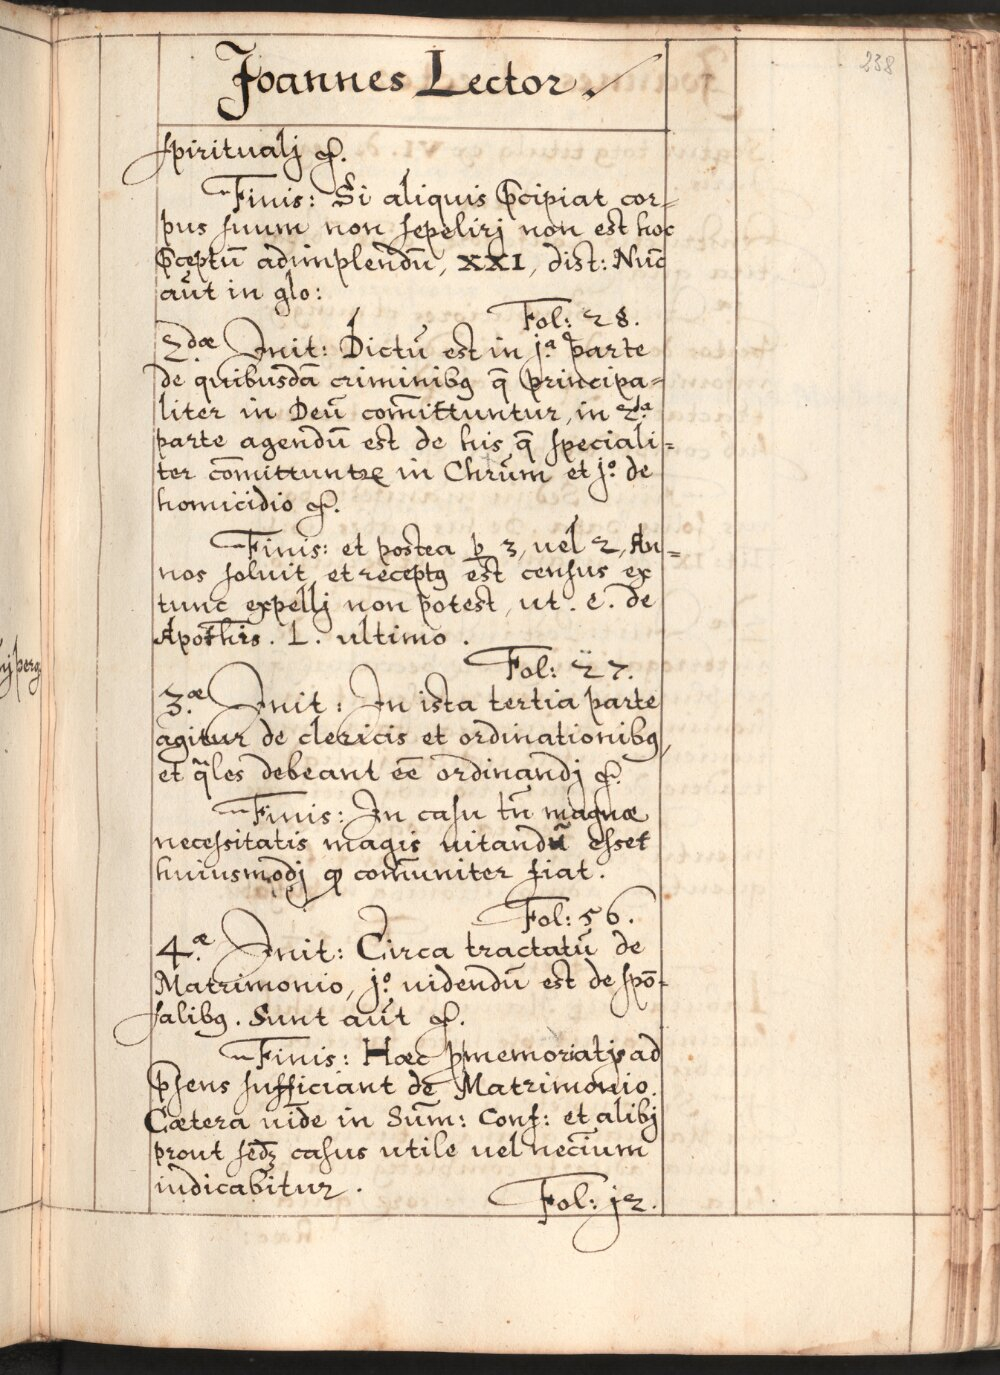 Joannes Lector
238
spiritualj &.
Finis: Si aliquis p̄cipiat cor=
pus suum non sepelirj non est hoc
p̄ceptū adimplendū, XXI, dist: Nūc
aūt in glo:
Fol: 28.
2.dæ Init: Dictū est in j.a parte
de quibusdā criminibꝫ q̄ principa=
liter in Deū com̄ittuntur, in 2.da
parte agendū est de his q̄ speciali=
ter com̄ittuntꝛ in Chrūm et jo. de
homicidio &.
Finis: et postea p̱ 3, uel 2, An=
nos soluit, et receptꝫ est census ex
tunc expellj non potest, ut. C. de
Apoth̄is. L. ultimo.
Fol: 27.
3.æ Init: In ista tertia parte
agitur de clericis et ordinationibꝫ,
et q̄les debeant eē ordinandj &.
Finis: In casu tn̄ magnæ
necessitatis magis uitandū esset
huiusmodj ꝙ com̄uniter fiat.
Fol: 56.
4.æ Init: Circa tractatū de
Matrimonio, jo. uidendū est de spō=
salibꝫ. Sunt aūt &.
Finis: Hæc p̱ memoriatis ad
p̄sens sufficiant de Matrimonio.
Cætera uide in Sum̄: Conf: et alibj
prout sed̄ casus utile uel nec̄ium
iudicabitur.
Fol: j2.